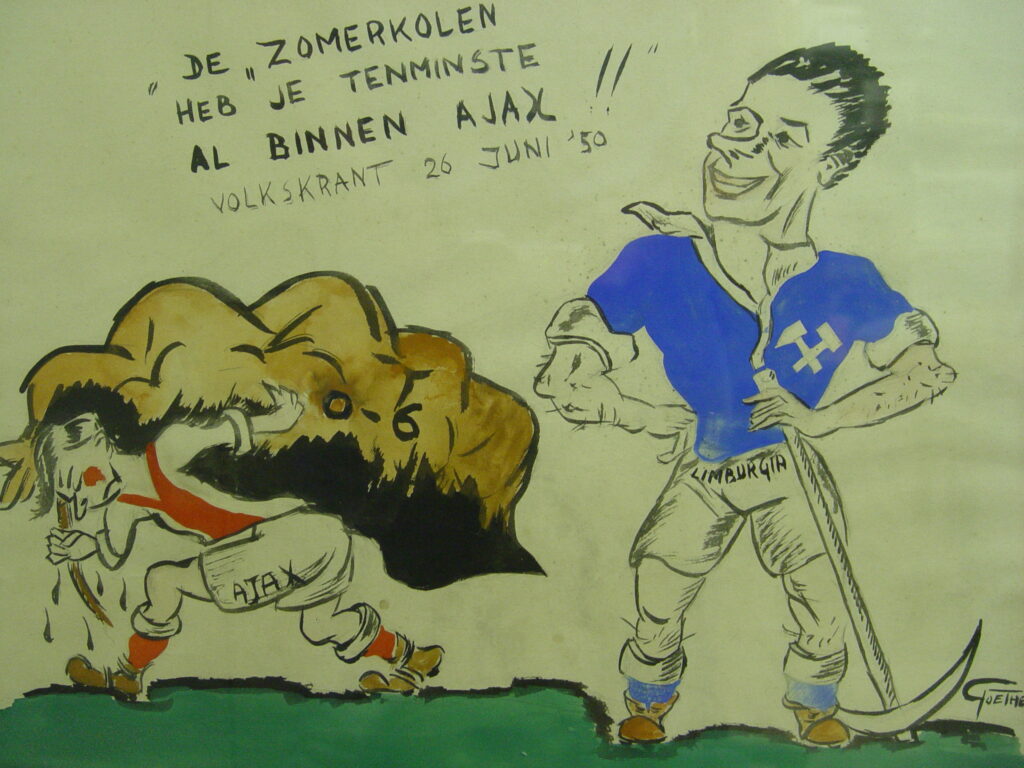 " DE „ ZOMERKOLEN
HEB JE TENMINSTE
AL BINNEN AJAX !! "
VOLKSKRANT 26 JUNI '50
0-6
AJAX
LIMBURGIA
GOETHE